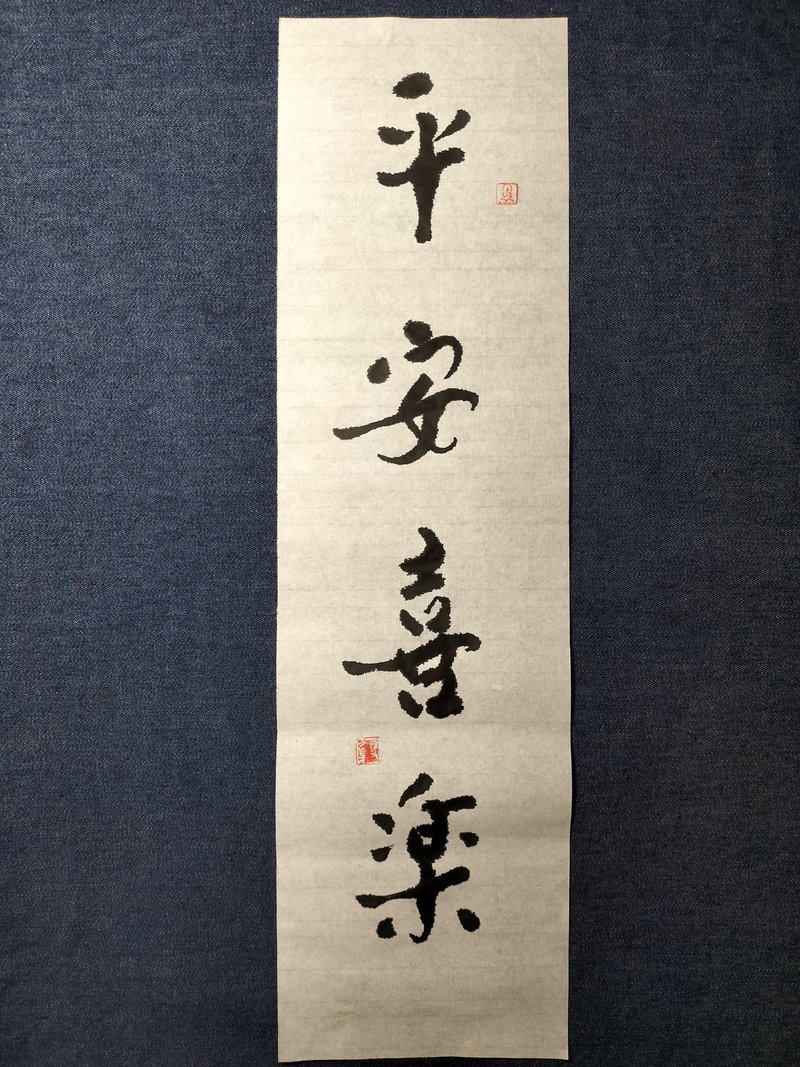 平安喜楽